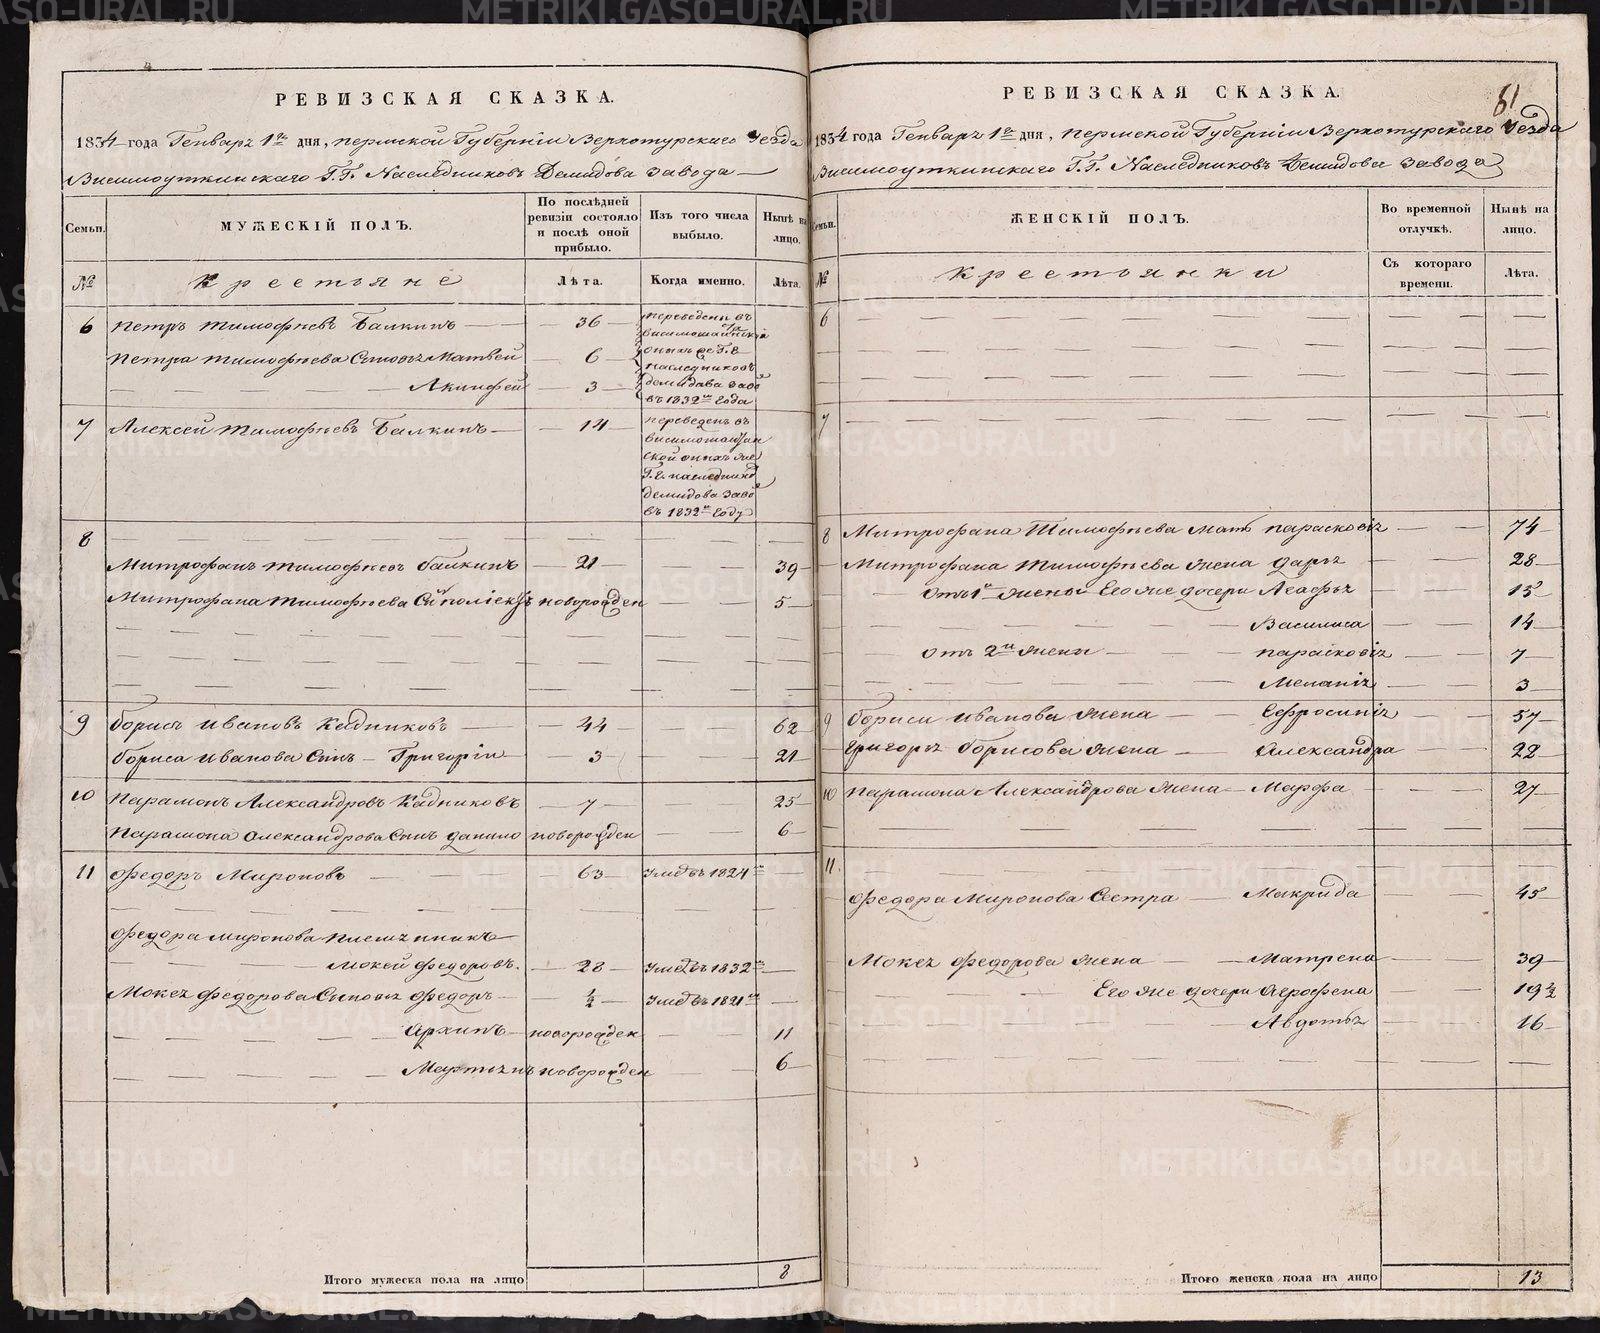 РЕВИЗСКАЯ СКАЗКА.
1834 года Генваря 1го дня, Пермской Губернiи Верхотурскаго Уезда
Висимоуткинскаго Г.Г. Наследниковъ Демидова завода
Семьи.
МУЖЕСКIЙ ПОЛЪ.
По послѣдней ревизiи состояло и послѣ оной прибыло.
Изъ того числа выбыло.
Нынѣ на лицо.
№
Крестьяне
Лѣта.
Когда именно.
Лѣта.
6 Петръ Тимофѣевъ Балкинъ 36 переведены въ
висимошайтанской
Петра Тимофѣева Сыновья Матвей 6 оныхъ же Г.Г.
наследниковъ
Акинфей 3 демидова заво
въ 1832м года
7 Алексей Тимофѣевъ Балкинъ 14 переведенъ въ
висимошайтан
ской оныхъ же
Г.Г. наследнико
демидова заво
въ 1832м году
8
Митрофанъ Тимофѣевъ Балкинъ 21 39
Митрофана Тимофѣева Сынъ новорожден 5
9 Борисъ Ивановъ Кадниковъ 44 62
Бориса Иванова Сынъ Григорiи 3 21
10 Парамонъ Александровъ Кадниковъ 7 25
Парамона Александрова Сынъ Данило новорожден 6
11 Федоръ Мироновъ 63 умеръ въ 1824м
Федора Миронова племянникъ
Мокей Федоровъ. 28 умеръ въ 1832м
Мокея Федорова Сыновья Федоръ ½ умеръ въ 1821м
Архипъ новорожден 11
Мартынъ новорожден 6
Итого мужеска пола на лицо 8
81
РЕВИЗСКАЯ СКАЗКА.
1834 года Генваря 1го дня, Пермской Губернiи Верхотурскаго Уезда
Висимоуткинскаго Г.Г. Наследниковъ Демидова завода
Семьи.
ЖЕНСКIЙ ПОЛЪ.
Во временной отлучкѣ.
Нынѣ на лицо.
№
Крестьянки
Съ котораго времени.
Лѣта.
6
7
8 Митрофана Тимофѣева мать Парасковiя 74
Митрофана Тимофѣева жена Дарья 28
Отъ 1й жены Его же дочери Агафья 15
Василиса 14
Отъ 2й жены Парасковiя 7
Меланiя 3
9 Бориса Иванова жена Ефросинiя 57
Григорья Борисова жена Александра 22
10 Парамона Александрова жена Марфа 27
11
Федора Миронова Сестра Макрида 45
Мокея Федорова жена Матрена 39
Его же дочери Агрофена 19½
Авдотья 16
Итого женска пола на лицо 13
METRIKI.GASO-URAL.RU